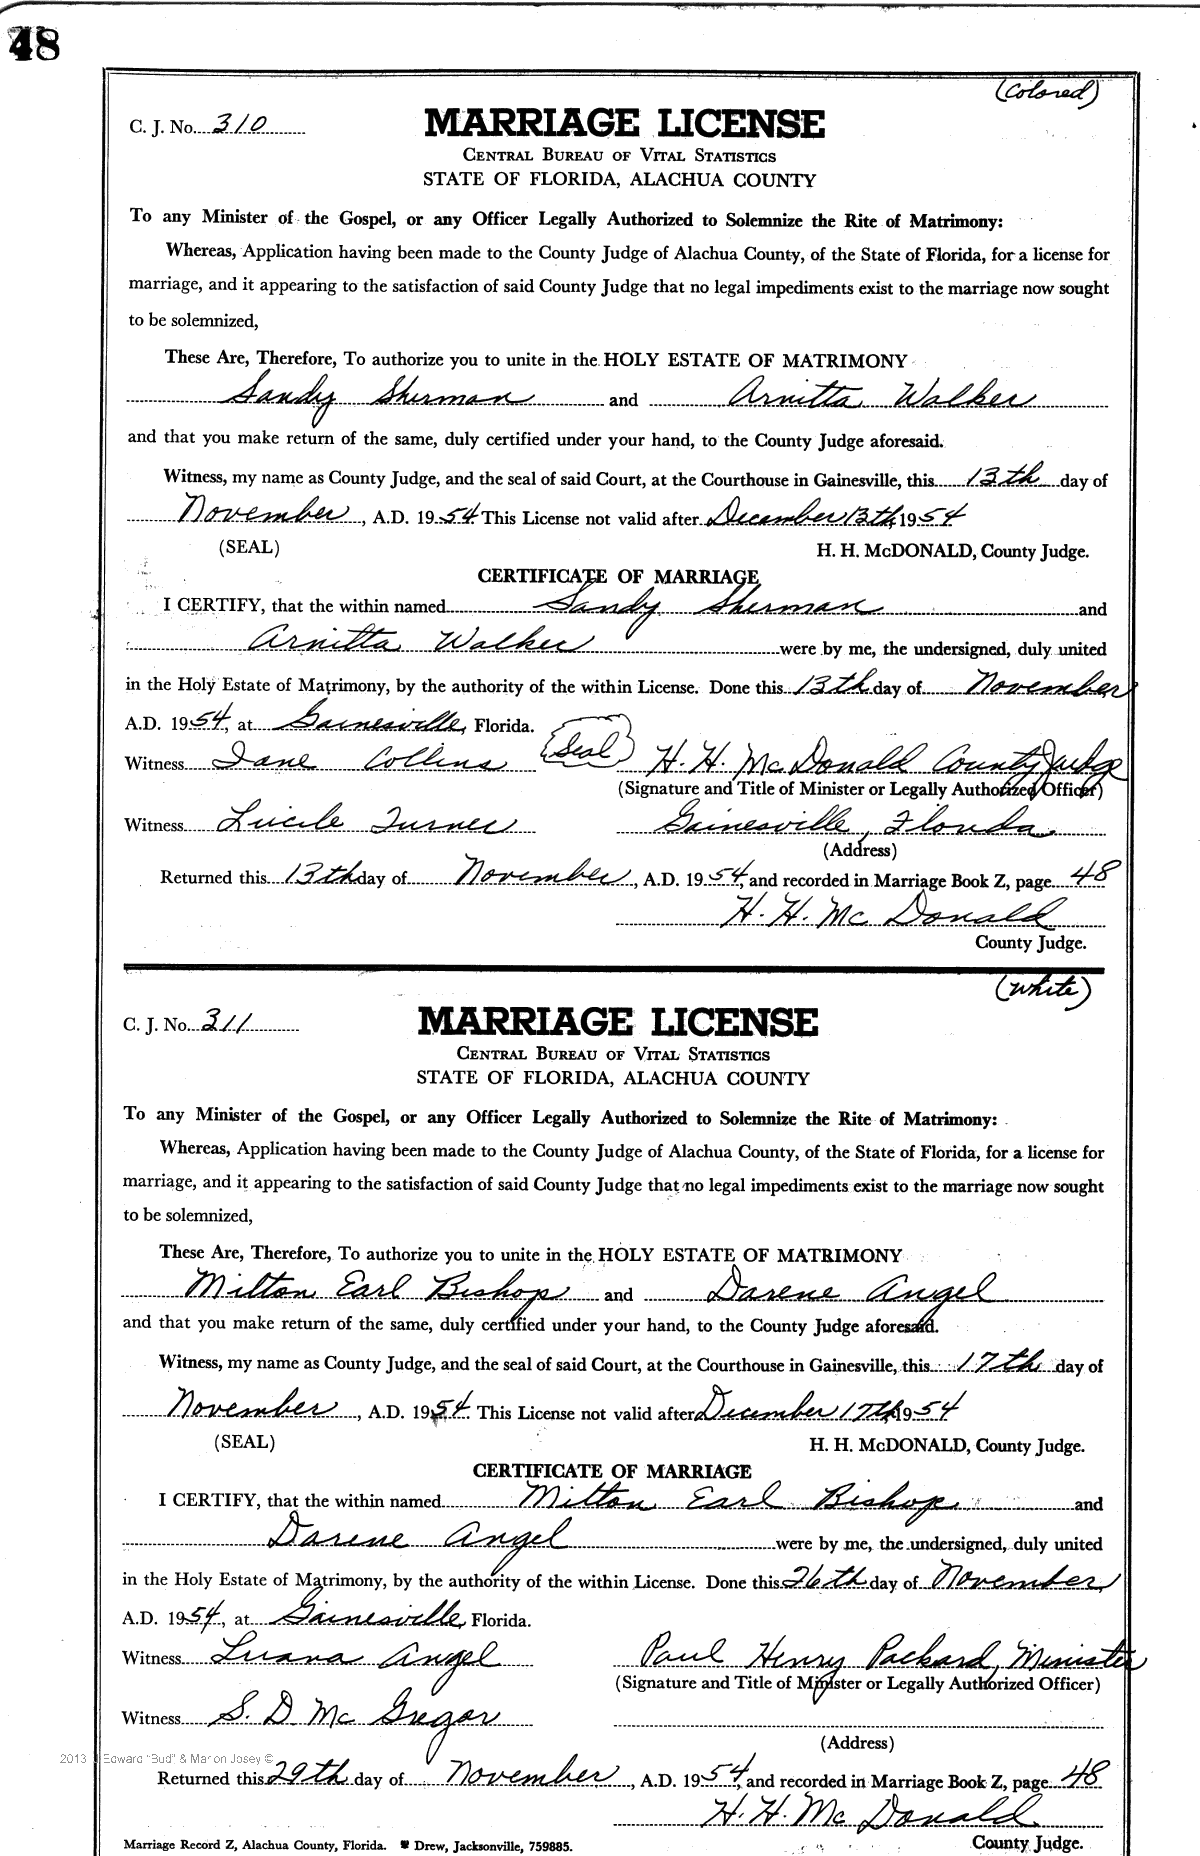 48
(Colored)
C. J. No. 310
MARRIAGE LICENSE
CENTRAL BUREAU OF VITAL STATISTICS
STATE OF FLORIDA, ALACHUA COUNTY
To any Minister of the Gospel, or any Officer Legally Authorized to Solemnize the Rite of Matrimony:
Whereas, Application having been made to the County Judge of Alachua County, of the State of Florida, for a license for
marriage, and it appearing to the satisfaction of said County Judge that no legal impediments exist to the marriage now sought
to be solemnized,
These Are, Therefore, To authorize you to unite in the HOLY ESTATE OF MATRIMONY
Sandy Sherman and Arnitta Walker
and that you make return of the same, duly certified under your hand, to the County Judge aforesaid.
Witness, my name as County Judge, and the seal of said Court, at the Courthouse in Gainesville, this 13th day of
November, A.D. 1954 This License not valid after December 13th, 1954
(SEAL) H. H. McDONALD, County Judge.
CERTIFICATE OF MARRIAGE
I CERTIFY, that the within named Sandy Sherman and
Arnitta Walker were by me, the undersigned, duly united
in the Holy Estate of Matrimony, by the authority of the within License. Done this 13th day of November
A.D. 1954, at Gainesville, Florida.
Witness Jane Collins (Seal) H. H. McDonald County Judge
(Signature and Title of Minister or Legally Authorized Officer)
Witness Lucile Turner Gainesville, Florida
(Address)
Returned this 13th day of November, A.D. 1954, and recorded in Marriage Book Z, page 48
H. H. McDonald
County Judge.
(White)
C. J. No. 311
MARRIAGE LICENSE
CENTRAL BUREAU OF VITAL STATISTICS
STATE OF FLORIDA, ALACHUA COUNTY
To any Minister of the Gospel, or any Officer Legally Authorized to Solemnize the Rite of Matrimony:
Whereas, Application having been made to the County Judge of Alachua County, of the State of Florida, for a license for
marriage, and it appearing to the satisfaction of said County Judge that no legal impediments exist to the marriage now sought
to be solemnized,
These Are, Therefore, To authorize you to unite in the HOLY ESTATE OF MATRIMONY
Milton Earl Bishop and Darene Angel
and that you make return of the same, duly certified under your hand, to the County Judge aforesaid.
Witness, my name as County Judge, and the seal of said Court, at the Courthouse in Gainesville, this 17th day of
November, A.D. 1954. This License not valid after December 17th, 1954
(SEAL) H. H. McDONALD, County Judge.
CERTIFICATE OF MARRIAGE
I CERTIFY, that the within named Milton Earl Bishop and
Darene Angel were by me, the undersigned, duly united
in the Holy Estate of Matrimony, by the authority of the within License. Done this 26th day of November,
A.D. 1954, at Gainesville, Florida.
Witness Luana Angel Paul Henry Packard, Minister
(Signature and Title of Minister or Legally Authorized Officer)
Witness S. D. McGregor
(Address)
2013 J Edward "Bud" & Marion Josey ©
Returned this 29th day of November, A.D. 1954, and recorded in Marriage Book Z, page 48
H. H. McDonald
County Judge.
Marriage Record Z, Alachua County, Florida. Drew, Jacksonville, 759885.